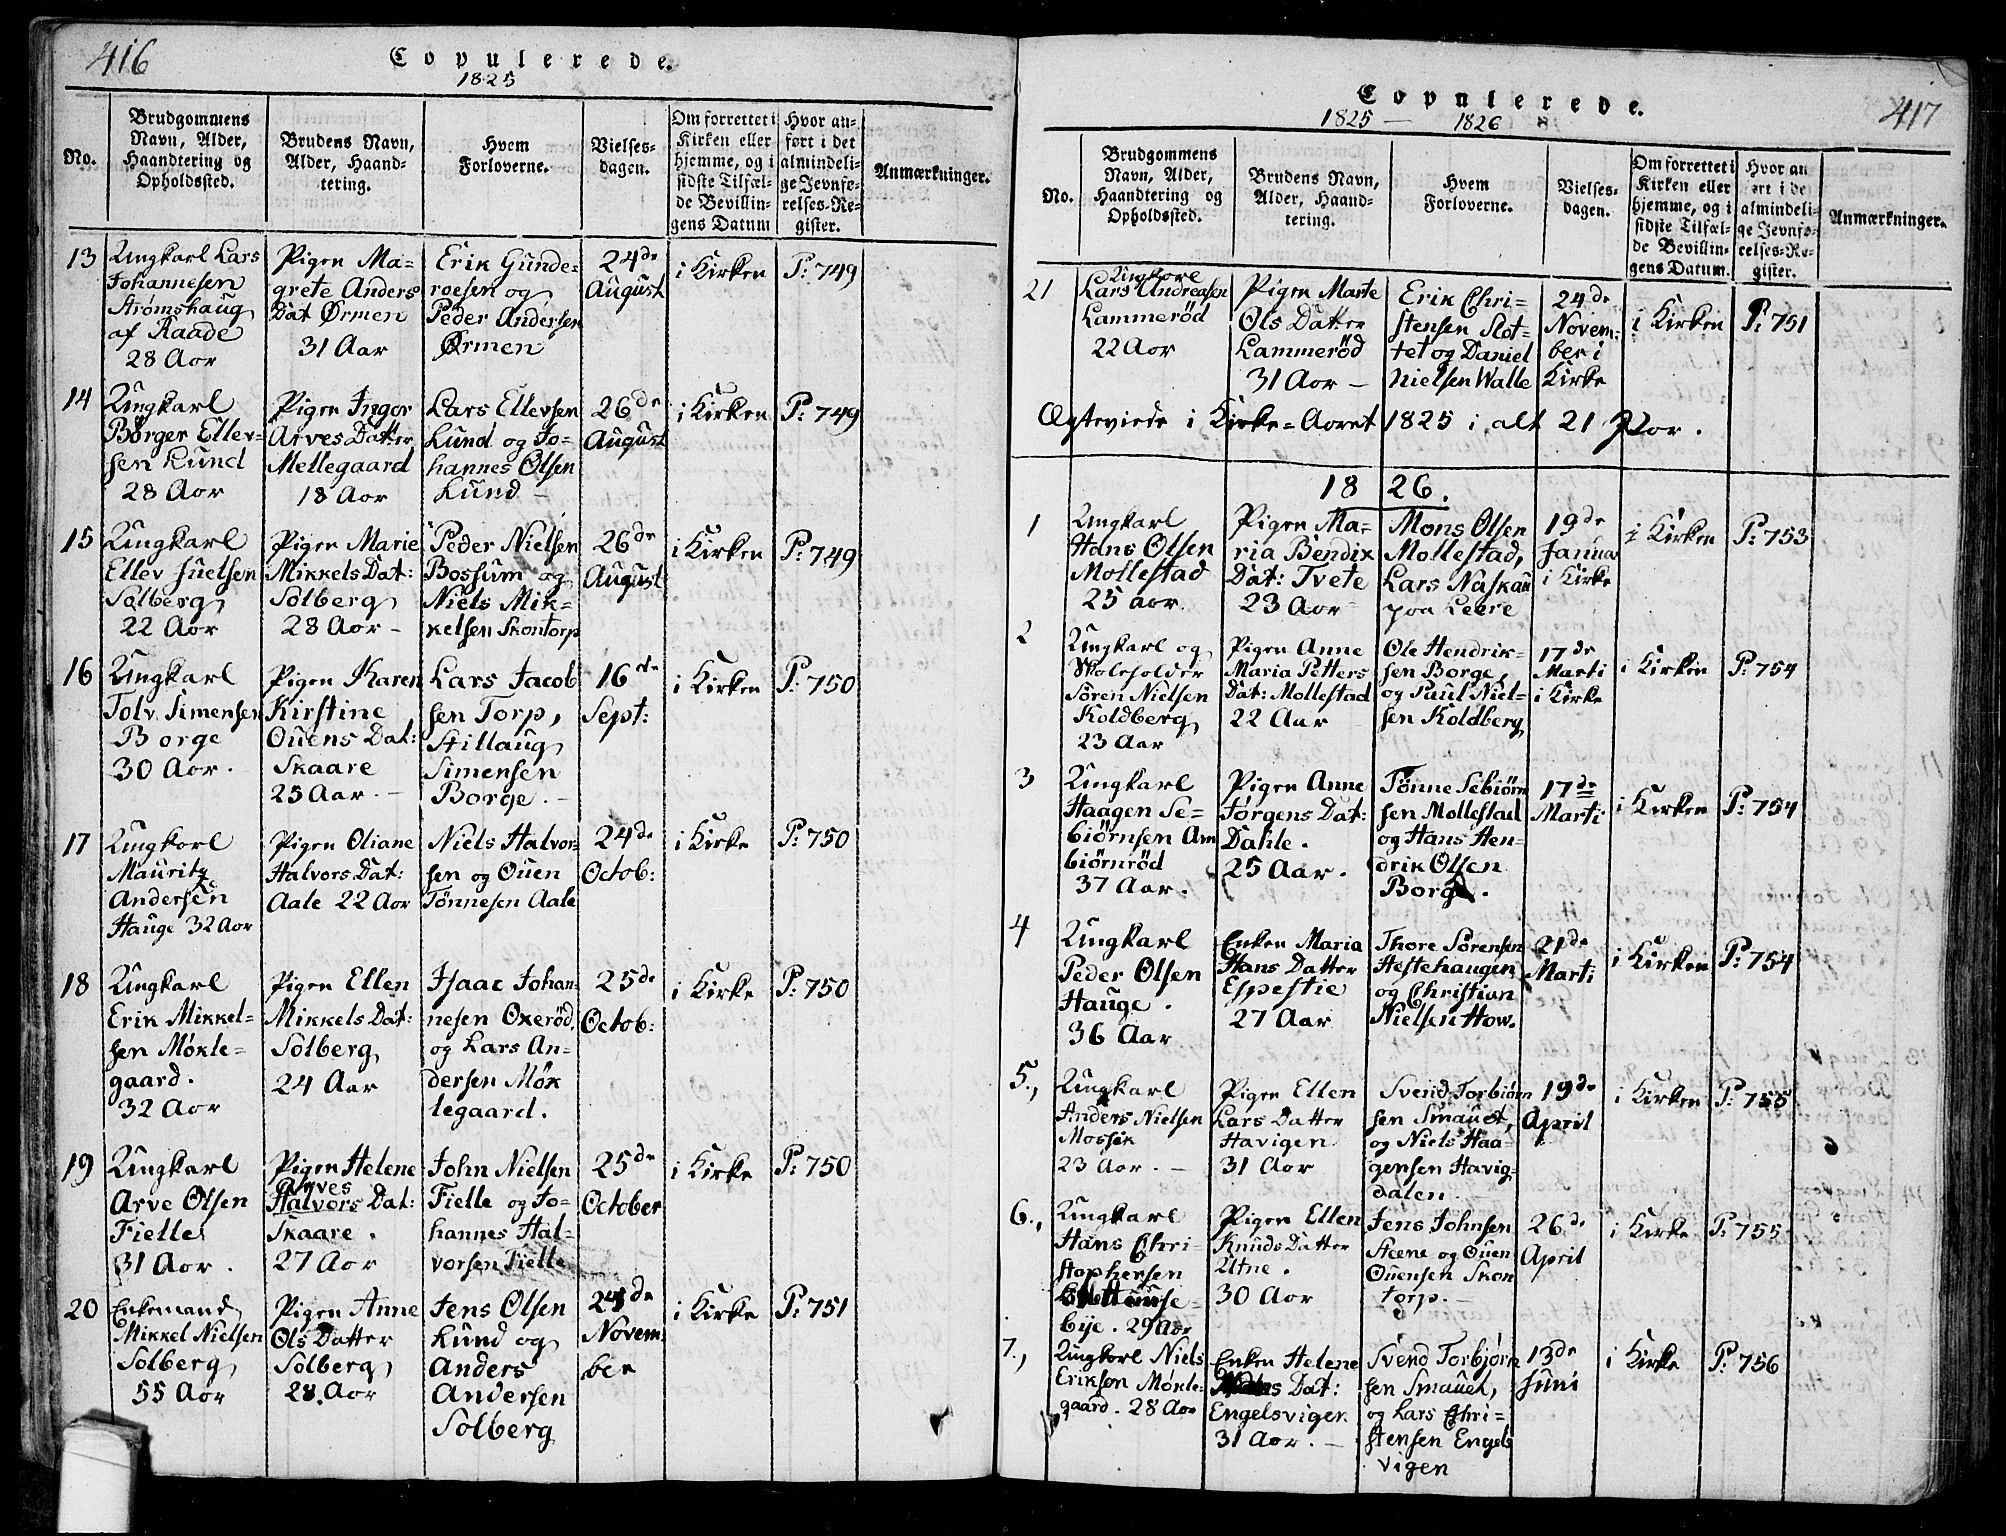 416
Copulerede.
1825
No.
Brudgommens
Navn, Alder,
Haandtering og
Opholdssted.
Brudens Navn,
Alder, Haand-
tering.
Hvem
Forloverne.
Vielses-
dagen.
Om forrettet i
Kirken eller
hjemme, og i
sidste Tilfæl-
de Bevillin-
gens Datum
Hvor an-
ført i det
almindeli-
ge Jevnfø-
relses-Re-
gister.
Anmærkninger.
13
Ungkarl Lars
Johannesen
Strømshaug
af Raade
28 Aar
Pigen Ma-
grete Anders
Dat Ørmen
31 Aar
Erik Gunde-
roesen og
Peder Andersen
Ørmen
24de
August
i Kirken
P: 749
14
Ungkarl
Børger Ellev-
sen Lund
28 Aar
Pigen Inger
Arves Datter
Mellegaard
18 Aar
Lars Ellevsen
Lund og Jo-
hannes Olsen
Lund -
26de
August
i Kirken
P: 749
15
Ungkarl
Ellev Juelsen
Solberg
22 Aar
Pigen Marie
Mikkels Dat:
Solberg
28 Aar -
Peder Nielsen
Bossum og
Niels Mik-
kelsen Skontorp
26de
August
i Kirken
P: 749
16
Ungkarl
Tolv. Simensen
Borge
30 Aar.
Pigen Karen
Kirstine
Ouens Dat:
Skaare
25 Aar. -
Lars Jacob
sen Torp,
Stillaug
Simensen
Borge. -
16de
Sept:
i Kirken
P: 750
17
Ungkarl
Mauritz
Andersen
Hauge 32 Aar
Pigen Oliane
Halvors Dat:
Aale 22 Aar
Niels Halvor-
sen og Ouen
Tønnesen Aale
24de
Octob:
i Kirke
P: 750
18
Ungkarl
Erik Mikkel-
sen Møkle-
gaard.
32 Aar
Pigen Ellen
Mikkels Dat:
Solberg
24 Aar
Isaac Johan-
nesen Oxerød
og Lars An-
dersen Møk
legaard.
25de
Octob:
i Kirke
P: 750
19
Ungkarl
Arve Olsen
Fielle
31 Aar.
Pigen Helene
Arves
Halvors Dat:
Skaare.
27 Aar
John Nielsen
Fielle og Jo-
hannes Hal-
vorsen Fielle
25de
October
i Kirke
P: 750
20
Enkemand
Mikkel Nielsen
Solberg
55 Aar
Pigen Anne
Ols Datter
Solberg
28. Aar
Jens Olsen
Lund og
Anders
Andersen
Solberg
24de
Novem
ber
i Kirke
P: 751
417
Copulerede.
1825 - 1826
No.
Brudgommens
Navn, Alder,
Haandtering og
Opholdssted.
Brudens Navn,
Alder, Haand-
tering.
Hvem
Forloverne.
Vielses-
dagen.
Om forrettet i
Kirken eller
hjemme, og i
sidste Tilfæl-
de Bevillin-
gens Datum.
Hvor an
ført i de
almindeli-
ge Jevnfø-
relses-Re-
gister.
Anmærkninger.
21
Ungkarl
Lars Andreasen
Lammerød
22 Aar
Pigen Marte
Ols Datter
Lammerød
31 Aar -
Erik Chri-
stensen Slot-
tet og Daniel
Nielsen Walle
24de
Novem-
ber i
Kirke
i Kirken
P: 751
Ægteviede i Kirke-Aaret 1825 i alt 21 Par.
1826.
1
Ungkarl
Hans Olsen
Mollestad
25 aar.
Pigen Ma-
ria Bendix
Dat: Tvete
23 Aar
Mons Olsen
Mollestad,
Lars Naskau
paa Leere
19de
Janua
i Kirke
i Kirken
P: 753
2
Ungkarl og
Skoleholder
Søren Nielsen
Koldberg
23 Aar
Pigen Anne
Maria Petters
Dat: Mollestad
22 Aar
Ole Hendrik-
sen Borge
og Paul Niel-
sen Koldberg
17de
Marti
i Kirke
i Kirken
P: 754
3
Ungkarl
Haagen Se-
biørnsen Am
biørnrød
37 Aar.
Pigen Anne
Jørgens Dat:
Dahle.
25 Aar.
Tønne Sebiørn
sen Mollestad
og Hans Hen-
drik Olsen
Borge.
17de
Marti
i Kirken
P: 754
4
Ungkarl
Peder Olsen
Hauge.
36 Aar
Enken Maria
Hans Datter
Espestie
27 Aar
Thore Sørensen
Hestehaugen
og Christian
Nielsen How.
21de
Marti
i Kirken
P: 754
5.,
Ungkarl
Anders Nielsen
Mossik
23 Aar. -
Pigen Ellen
Lars Datter
Havigen
31 Aar
Svend Torbiørn
sen Smauet,
og Niels Haa-
gensen Havig-
dalen.
19de
April
i Kirken
P: 755
6.,
Ungkarl
Hans Chri-
stophersen
bije. 29 Aar
Pigen Ellen
Knuds Datter
Utne.
30 Aar
Jens Johnsen
Steene og Ouen
Ouensen Skon
torp. -
26de
April
i Kirke
P: 755
7.,
Ungkarl Niels
Eriksen Møkle-
gaard. 28 Aar
Enken Helene
Dat:
Engelsvigen
31 Aar. -
Svend Torbjørn
sen Smauet,
og Lars Chri-
stensen Engels
vigen
13de
Juni
i Kirke
P: 756